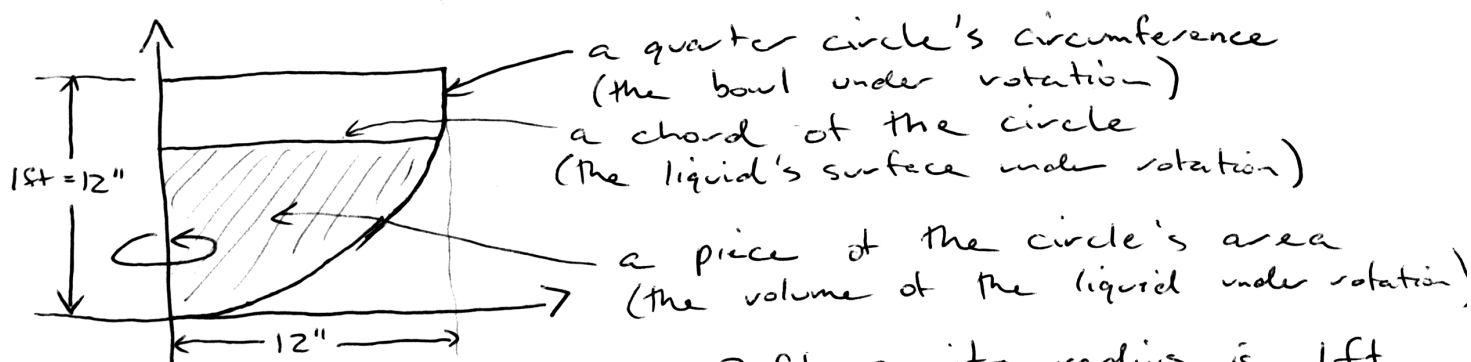 a quarter circle's circumference
(the bowl under rotation)
a chord of the circle
(the liquid's surface under rotation)
1ft = 12"
a piece of the circle's area
(the volume of the liquid under rotation)
12"
2 ft its radius is 1ft